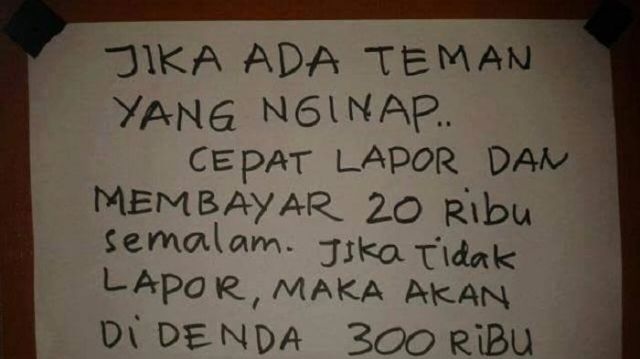 JIKA ADA TEMAN
YANG NGINAP..
CEPAT LAPOR DAN
MEMBAYAR 20 Ribu
semalam. Jika Tidak
LAPOR, MAKA AKAN
Di DENDA 300 RiBU